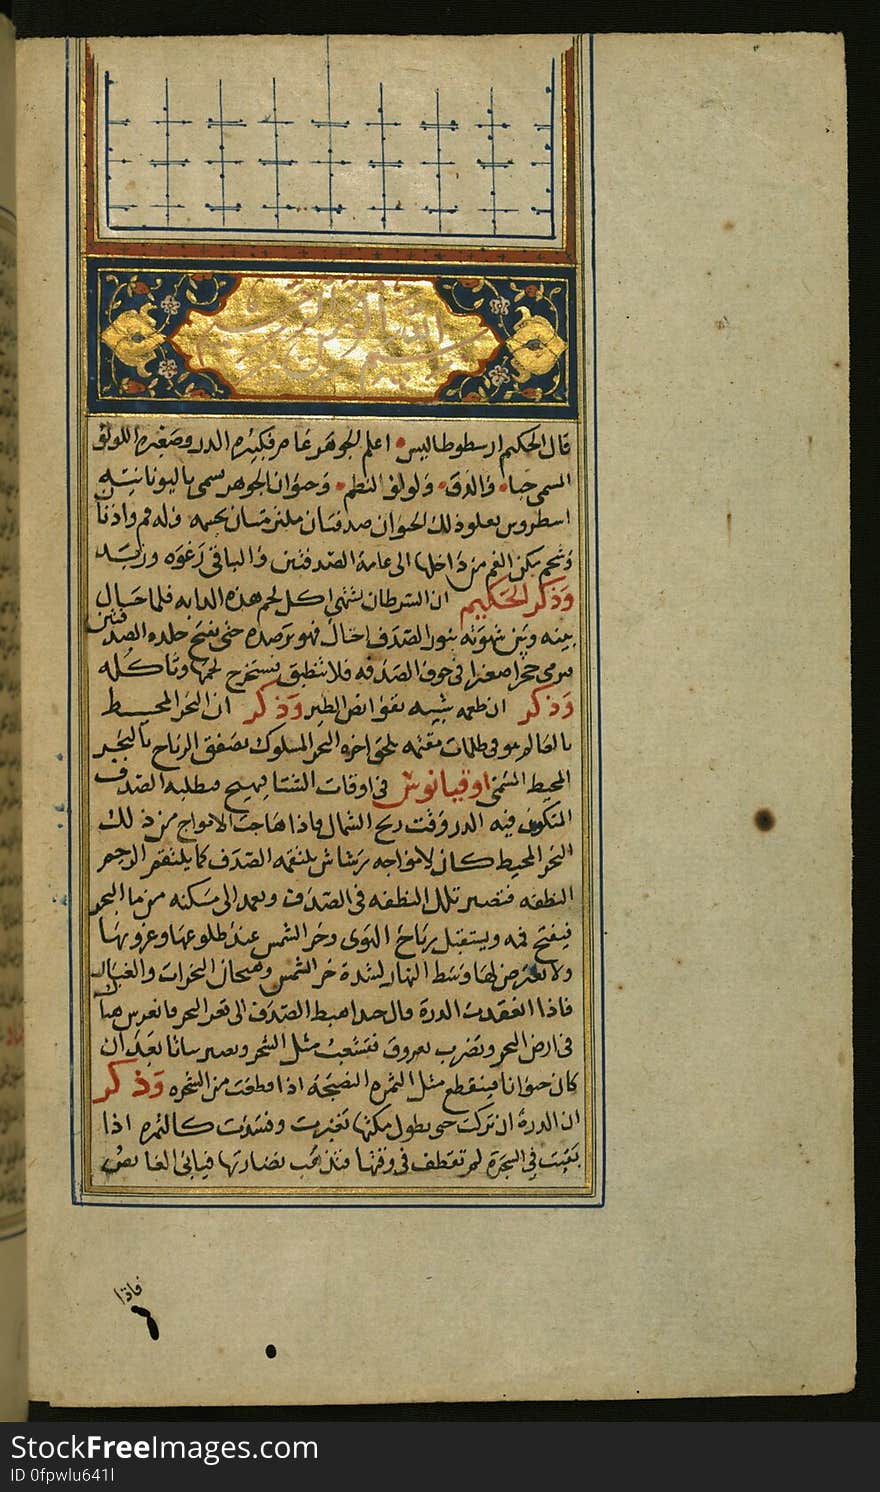 بسم الله الرحمن الرحيم
قال الحكيم ارسطوطاليس اعلم الجوهر فكبيره الدر وصغيره اللولؤ
المسمى حبا والدق ولولؤ النظم وحيوان الجوهر يسمى باليونانيته
اسطورس يعلو ذلك الحيوان صدفتان ملتزمتان بجسمه وله فم واذنا
وشحم يلى الفم من داخلها الى عامة الصدفتين والباقى رغوه وزبد
وذكر الحكيم ان السرطان يشتهى اكل لحم هذه الدابه فلما حال
بينه وبين شهوته سور الصدف احتال فهو يرصده حتى يفتح جلده الصدفتين
فيرمى حجرا صغيرا فى جوف الصدفه فلا تنطبق فيستخرج لحمها وتاكله
وذكر ان طعمه شبيه بقوانص الطير وذكر ان البحر المحيط
بالعالم هو فى ظلمات يلحق اخره البحر المسلوك تصفق الرياح بالبحر
المحيط المسمى اوقيانوس فى اوقات الشتا فيهيج فيطلبه الصدف
المتكون فيه الدر وقت ريح الشمال فاذا هاجت الامواج من ذلك
البحر المحيط كان لامواجه رشاش يلتقمه الصدف كما يلتقم الرحم
النطفه فتصير تلك النطفه فى الصدف ويعمد الى مسكنه من ما البحر
فيفتح فمه ويستقبل برياح الهوى وحر الشمس عند طلوعها وغروبها
ولا يعترض لها وسط النهار لشدة حر الشمس وهيجان البخرات والغبار
فاذا انعقدت الدرة هبط الصدف الى قعر البحر فانغرس
فى ارض البحر ويضرب بعروق فتشعب مثل الشجر ويصير نباتا بعد ان
كان حيوانا فينقطع مثل الثمره النضيجه اذا قطعت من الشجره وذكر
ان الدرة ان تركت حتى يطول مكثها تغيرت وفسدت كالثمره اذا
بقيت فى الشجرة لم تقطف فى وقتها نضارتها فياتى الغايص
فاذا
StockFreeImages.com
ID 0fpwlu641l